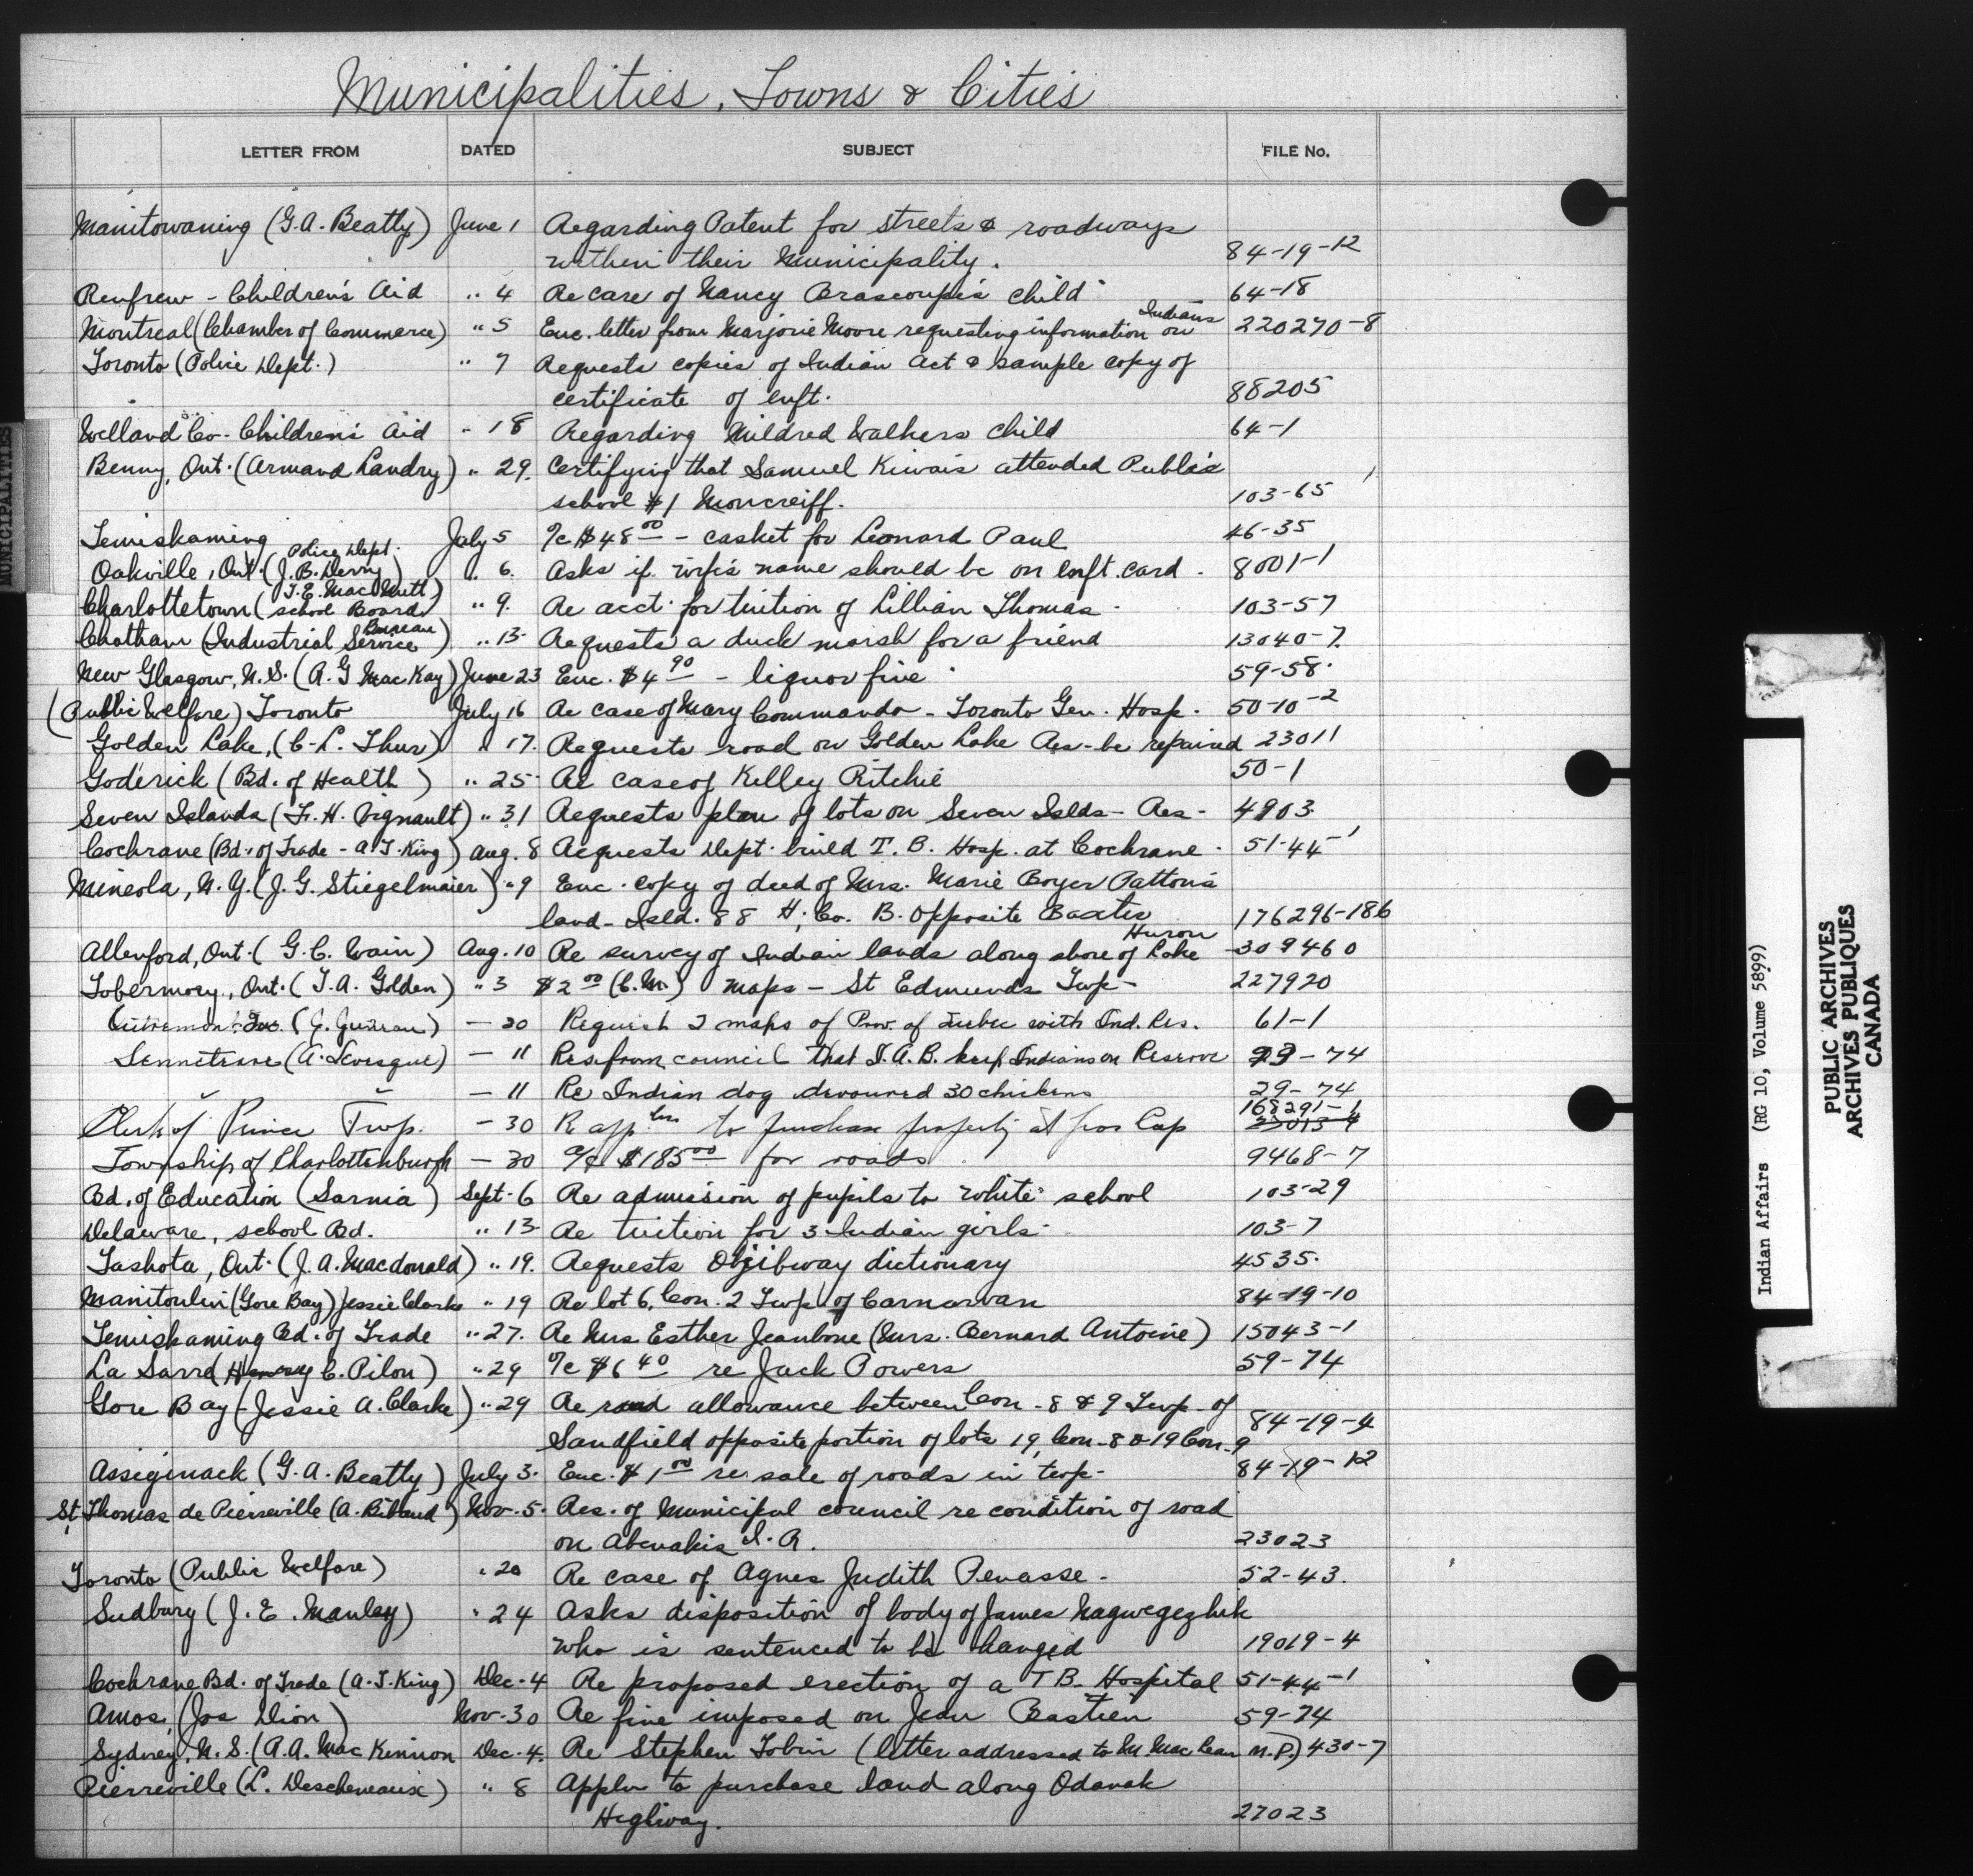 Municipalities, Towns & Cities
LETTER FROM DATED SUBJECT FILE No.
Manitowaning (G.A. Beatty) June 1 Regarding Patent for streets & roadways
within their Municipality. 84-19-12
Renfrew - Children's Aid " 4 Re care of Nancy Brascoupe's child 64-18
Indians
Montreal (Chamber of Commerce) " 5 Enc. letter from Marjorie Moore requesting information on 220270-8
Toronto (Police Dept.) " 7 Requests copies of Indian Act & sample copy of
certificate of enft. 88205
Welland Co. Children's Aid " 18 Regarding Mildred Walkers child 64-1
Benny, Ont. (Armand Landry) " 29. Certifying that Samuel Kiwais attended Public
school #1 Moncreiff. 103-65
Temiskaming July 5 a/c $48 00 - casket for Leonard Paul 46-35
Police Dept.
Oakville, Ont. (J.B. Derry) " 6. Asks if wife's name should be on enft. card. 8001-1
T.E. MacNutt)
Charlottetown (School Board " 9. Re acct. for tuition of Lillian Thomas. 103-57
Bureau
Chatham (Industrial Service) " 13. Requests a duck marsh for a friend 13040-7.
New Glasgow, N.S. (A.G MacKay) June 23 Enc. $4 90 - liquor fine 59-58.
(Public Welfare) Toronto July 16 Re case of Mary Commando - Toronto Gen. Hosp. 50-10-2
Golden Lake, (C.L. Thur) " 17. Requests road on Golden Lake Res. be repaired 23011
Goderick (Bd. of Health) " 25 Re case of Kelley Ritchie 50-1
Seven Islands (F.H. Vignault) " 31 Requests plan of lots on Seven Islds. Res. 4903.
Cochrane (Bd. of Trade - A.T. King) Aug. 8 Requests Dept. build T.B. Hosp. at Cochrane. 51-44-1
Mineola, N.Y. (J.G. Stiegelmaier) " 9 Enc. copy of deed of Mrs. Marie Boyer Patton's
land - Isld. 88 H. Co. B. Opposite Baxter 176296-186
Huron
Allenford, Ont. (G.C. Wain) Aug. 10 Re survey of Indian lands along shore of Lake 309460
Tobermory, Ont. (T.A. Golden) " 3 $2 00 (C.M.) maps - St Edmunds Twp. 227920
Outremont, Que. (J. ) - 20 Request 2 maps of Prov. of Quebec with Ind. Res. 61-1
Senneterre (A. Levesque) - 11 Res. from council that I.A.B. keep Indians on Reserve 29-74
" " - 11 Re Indian dog devoured 30 chickens 29-74
168291-1
Clerk of Prince Twp. - 30 R appln to purchase property at Gros Cap 23013-4
Township of Charlottenburgh - 30 a/c $185 00 for roads 9468-7
Bd. of Education (Sarnia) Sept. 6 Re admission of pupils to white school 103-29
Delaware, school Bd. " 13 Re tuition for 3 Indian girls 103-7
Tashota, Ont. (J.A. Macdonald) " 19. Requests Objibway dictionary 4535.
Manitoulin (Gore Bay) Jessie Clarke " 19 Re lot 6, Con. 2 Twp. of Carnarvan 84-19-10
Temiskaming Bd. of Trade " 27. Re Mrs Esther Jeanbone (Mrs. Bernard Antoine) 15043-1
La Sarre (Henry C. Pilon) " 29 a/c $6 40 re Jack Powers 59-74
Gore Bay (Jessie A. Clarke) " 29 Re road allowance between Con. 8 & 9 Twp. of
Sandfield opposite portion of lots 19, Con. 8 & 19 Con. 9 84-19-4
Assiginack (G.A. Beatty) July 3. Enc. $1 00 re sale of roads in twp. 84-19-12
St. Thomas de Pierreville (A. Ribaud) Nov. 5. Res. of Municipal council re condition of road
on Abenakis I.R. 23023
Toronto (Public Welfare) " 20 Re case of Agnes Judith Penasse. 52-43.
Sudbury (J.E. Manley) " 24 Asks disposition of body of James Nagwegezhik
who is sentenced to be hanged 19019-4
Cochrane Bd. of Trade (A.T. King) Dec. 4 Re proposed erection of a TB. Hospital 51-44-1
Amos, (Jos Dion) Nov. 30 Re fine imposed on Jean Bastien 59-74
Sydney, N.S. (A.A. MacKinnon Dec. 4. Re Stephen Tobin (letter addressed to M MacLean M.P.) 430-7
Pierreville (L. Descheneaux) " 8 Appln to purchase land along Odanak
Highway. 27023
MUNICIPALITIES
Indian Affairs (RG 10, Volume 5899)
PUBLIC ARCHIVES
ARCHIVES PUBLIQUES
CANADA